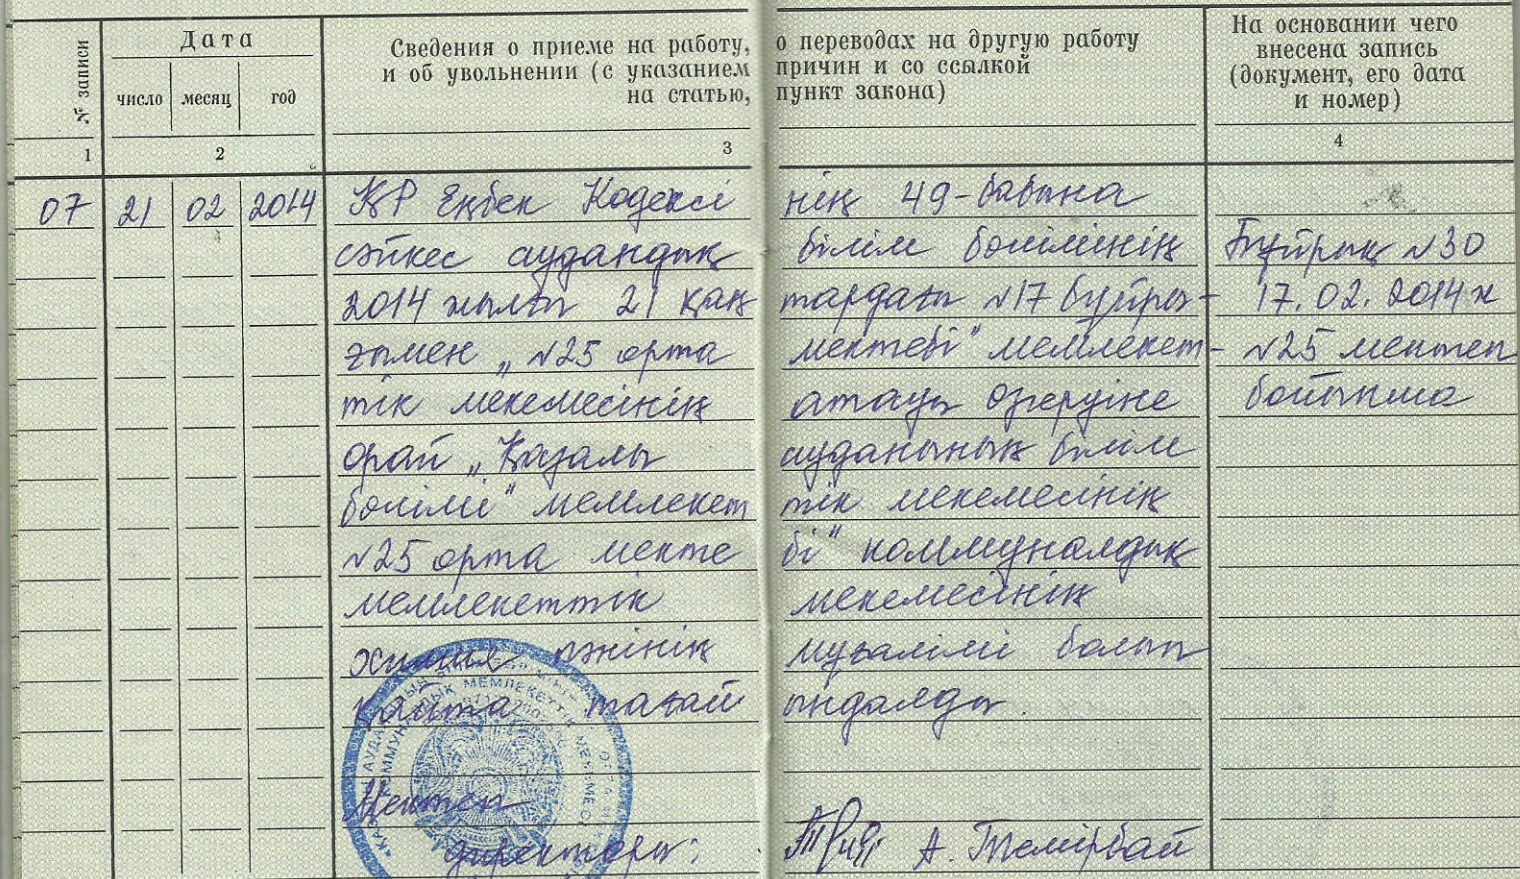 № записи
Дата
число месяц год
Сведения о приеме на работу, о переводах на другую работу
и об увольнении (с указанием причин и со ссылкой
на статью, пункт закона)
На основании чего
внесена запись
(документ, его дата
и номер)
1 2 3 4
07 21 02 2014 ҚР Еңбек Кодексі нің 49-бабына
сәйкес аудандық білім бөлімінің Бұйрық №30
2014 жылғы 21 қаң тардағы №17 бұйры- 17.02.2014ж
ғымен „№25 орта мектебі" мемлекет- №25 мектеп
тік мекемесінің атауы өзгеруіне бойынша
орай „Қазалы ауданының білім
бөлімі" мемлекет тік мекемесінің
№25 орта мекте бі" коммуналдық
мемлекеттік мекемесінің
химия пәнінің мұғалімі болып
қайта тағай ындалды.
Мектеп
директоры: А. Темірбай